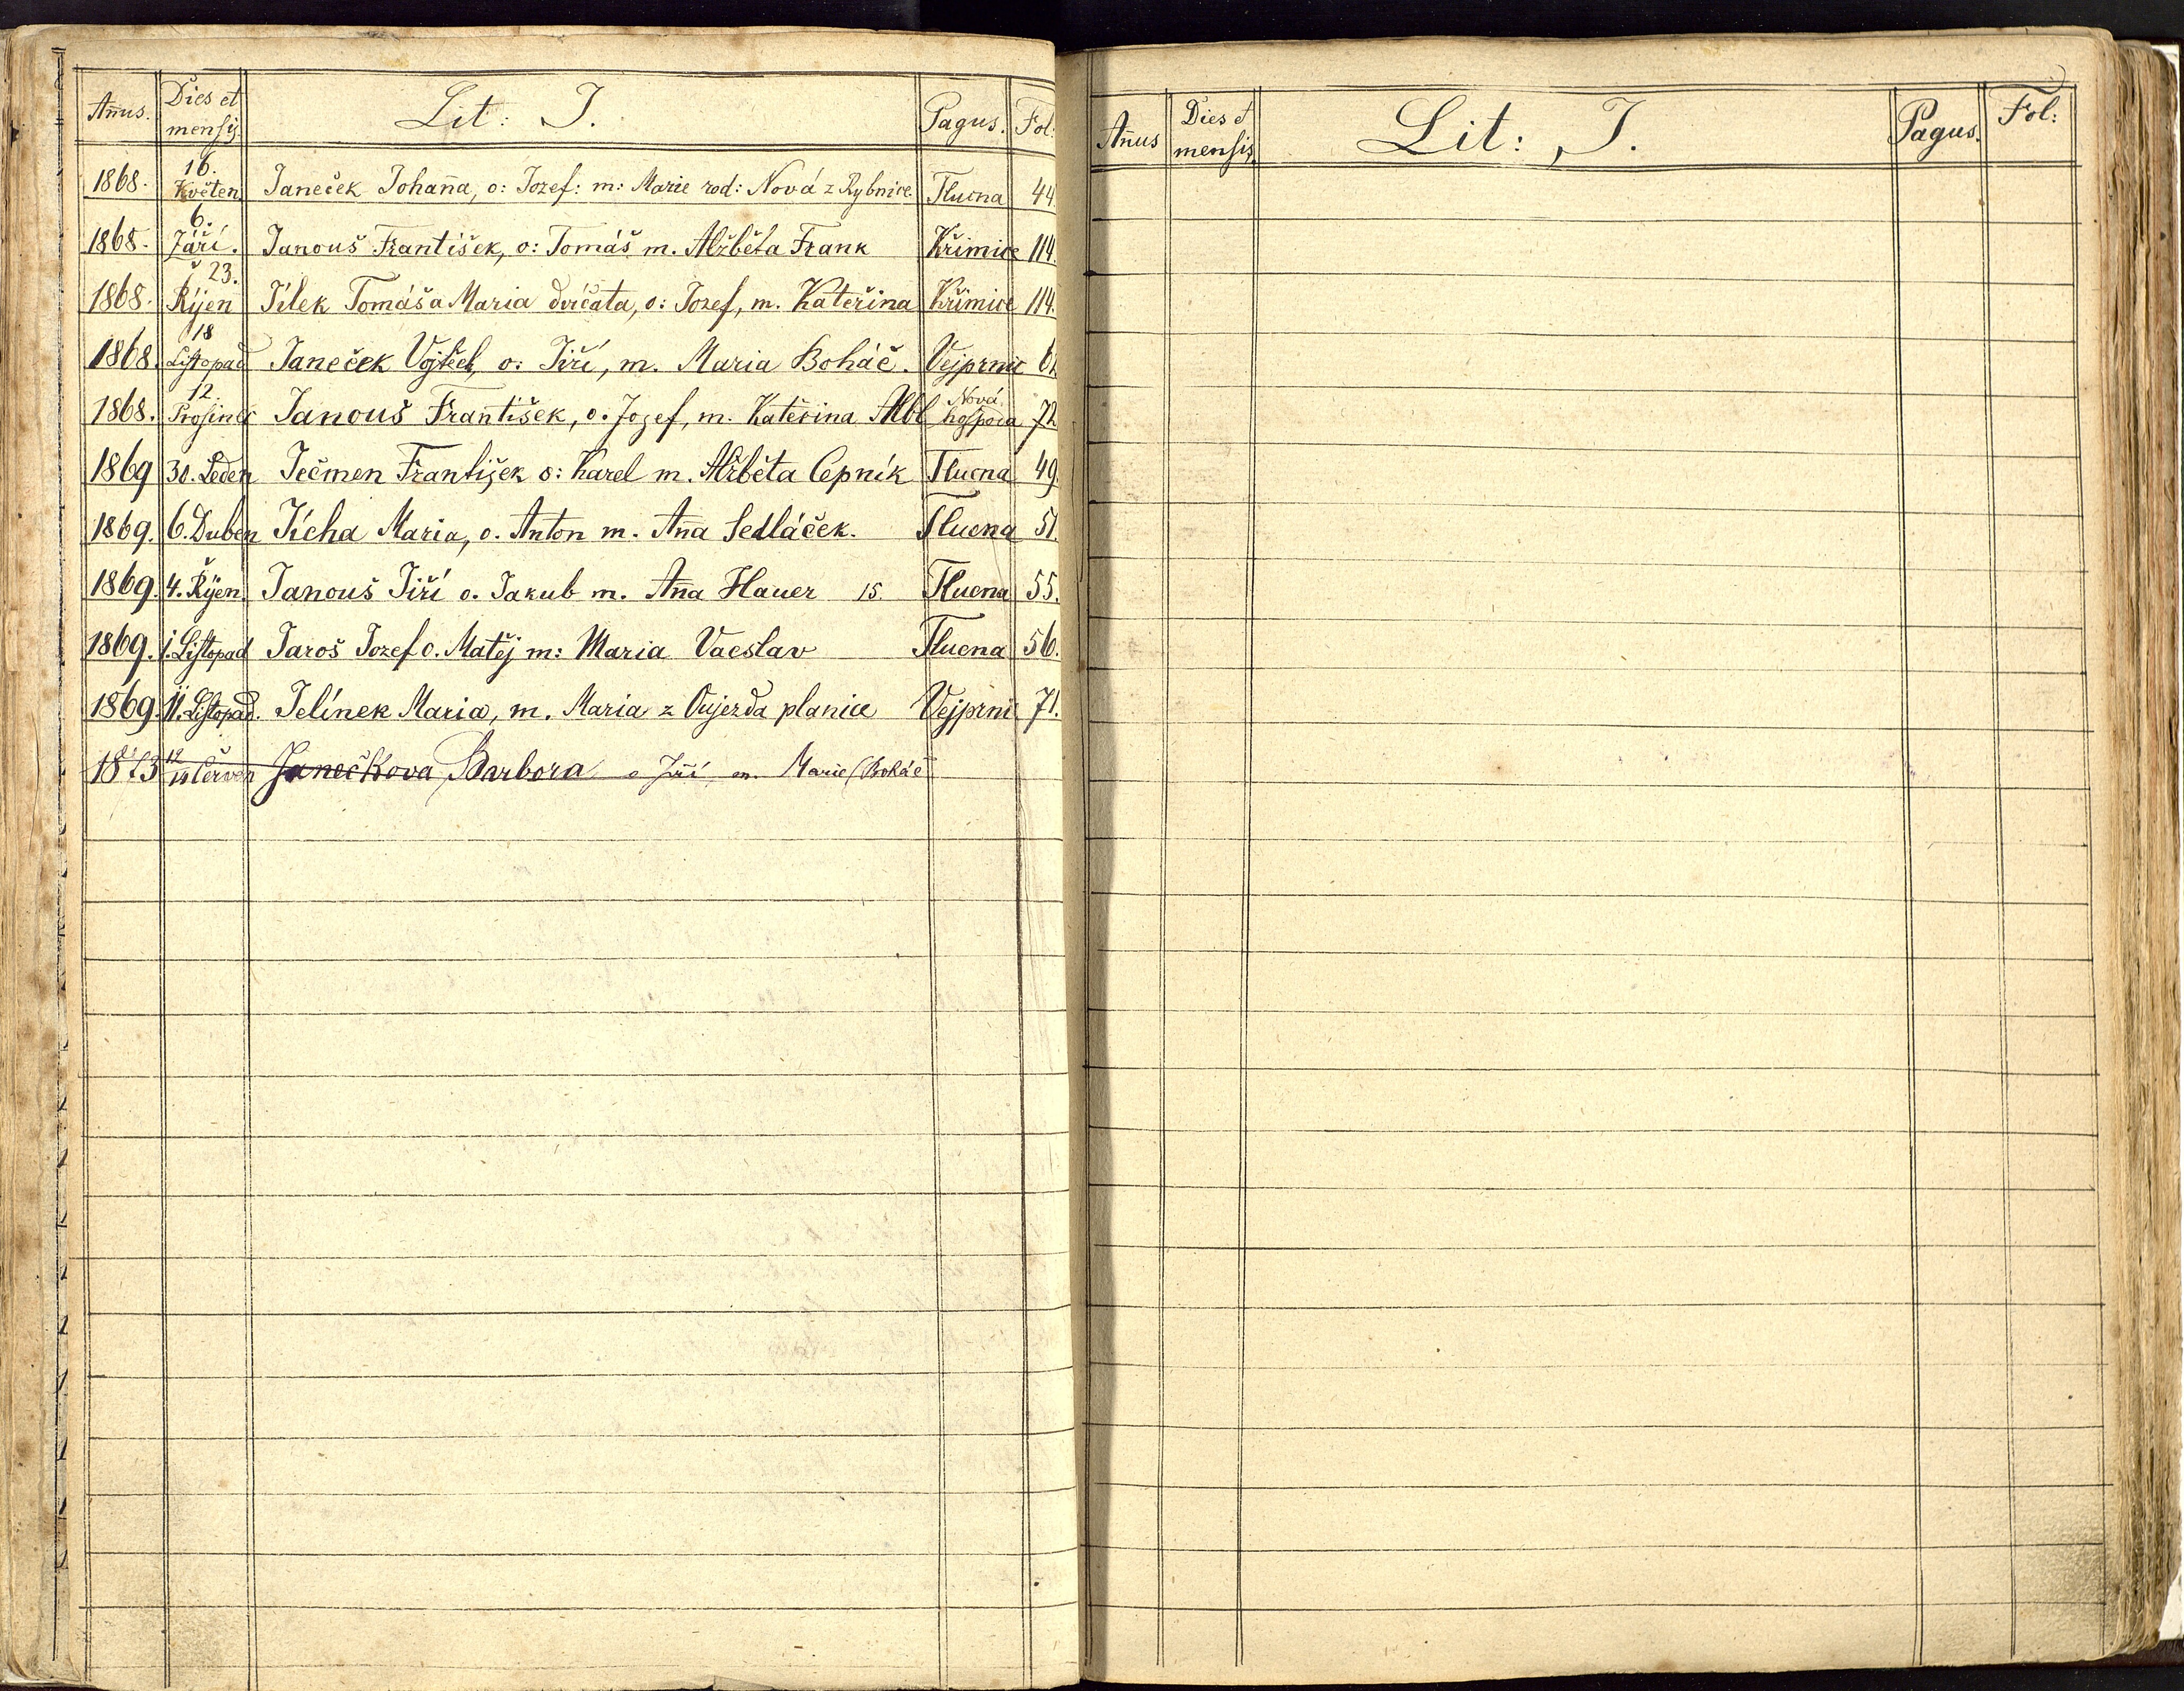 Añus. Dies et mensis. Lit: J. Pagus. Fol:
1868. 16. Květen Janeček Johaña, o: Jozef: m: Marie rod: Nová z Rybnice. Tlucna 44.
1868. 6. Září. Janouš František, o: Tomáš m. Alžběta Frank Křimice 114.
1868. 23. Říjen Jílek Tomáš a Maria dvíčata, o: Jozef, m. Kateřina Křimice 114.
1868. 18 Listopad Janeček Vojtěch, o: Jiří, m. Maria Boháč. Vejprnic
1868. 12. Prosinec Janouš František, o. Jozef, m. Kateřina Albl Nová hospoda 72
1869 30. Leden Ječmen František o: Karel m. Alžběta Cepník Tlucna 49.
1869. 6. Duben Jícha Maria, o. Anton m. Aña Sedláček. Tlucna 51.
1869. 4. Říjen. Janouš Jiří o. Jakub m. Aña Hauer 15. Tlucna 55.
1869. 1. Listopad Jaroš Jozef o. Matěj m: Maria Vacslav Tlucna 56.
1869. 11. Listopad. Jelínek Maria, m. Maria z Oujezda planice Vejprnic 71.
1873 12 Červen Janečkova Barbora o Jiří m. Marie (Boháč
Añus Dies et mensis. Lit: J. Pagus. Fol: